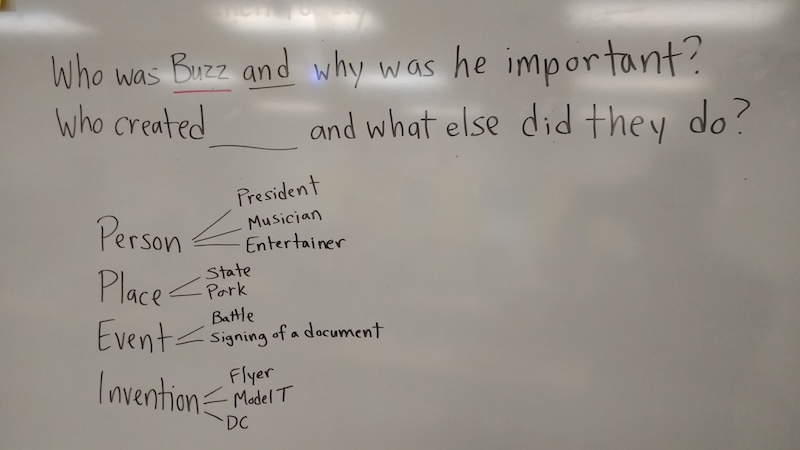 Who was Buzz and why was he important?
Who created ______ and what else did they do?
Person
President
Musician
Entertainer
Place
State
Park
Event
Battle
Signing of a document
Invention
Flyer
Model T
DC